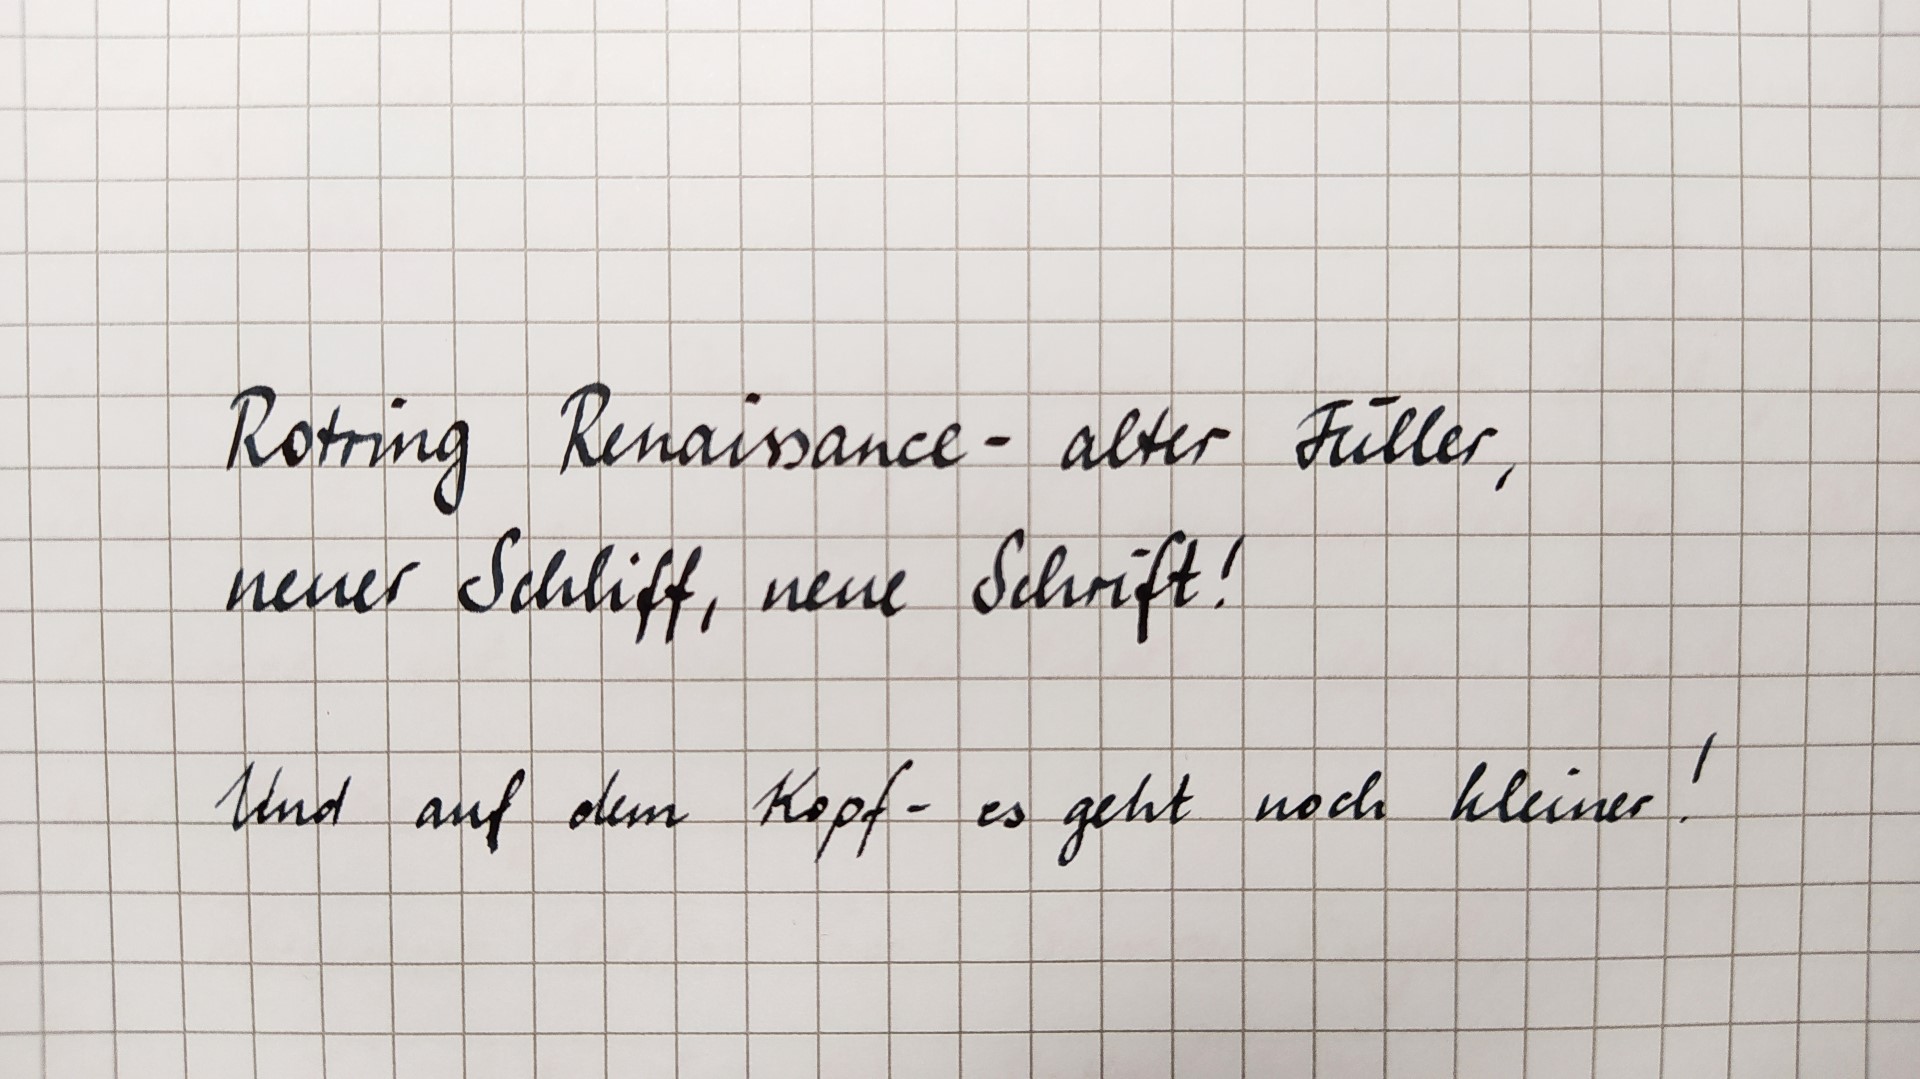 Rotring Renaissance - alter Füller,
neuer Schliff, neue Schrift!
Und auf dem Kopf - es geht noch kleiner!